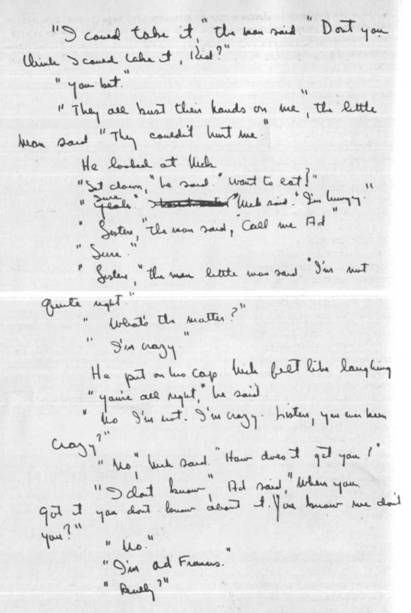 "I could take it," the man said. "Dont you
think I could take it, Kid?"
"You bet."
"They all bust their hands on me", the little
man said "They couldn't hurt me."
He looked at Nick
"Sit down," he said. "Want to eat?"
"Sure." "Nick said. "I'm hungry."
"Listen," the man said, "Call me Ad"
"Sure."
"Listen, "the man little man said. "I'm not
quite right."
"What's the matter?"
"I'm crazy"
He put on his cap. Nick felt like laughing
"you're all right," he said
"No I'm not. I'm crazy. Listen, you ever been
crazy?"
"No," Nick said. "How does it get you?"
"I dont know", Ad said, "When you
got it you dont know about it. You know me dont
you?"
"No."
"I'm ad Francis."
"Really?"